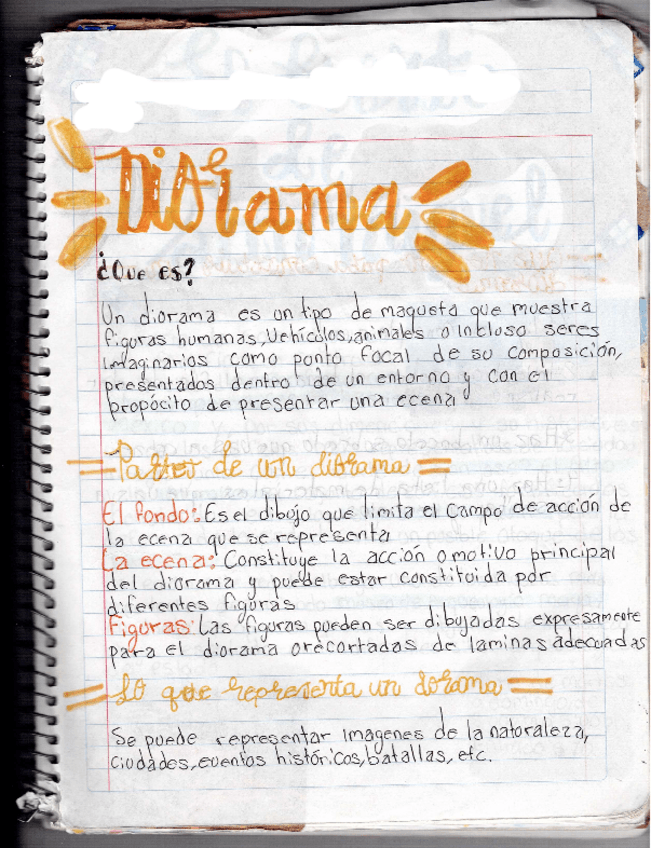 Diorama
¿Que es?
Un diorama es un tipo de maqueta que muestra
figuras humanas, vehículos, animales o incluso seres
imaginarios como punto focal de su composición,
presentados dentro de un entorno y con el
propócito de presentar una ecena
Partes de un diorama
El fondo: Es el dibujo que limita el campo de acción de
la ecena que se representa
La ecena: Constituye la acción o motivo principal
del diorama y puede estar constituida por
diferentes figuras
Figuras: Las figuras pueden ser dibujadas expresamente
para el diorama o recortadas de laminas adecuadas
Lo que representa un dorama
Se puede representar imagenes de la naturaleza,
ciudades, eventos históricos, batallas, etc.